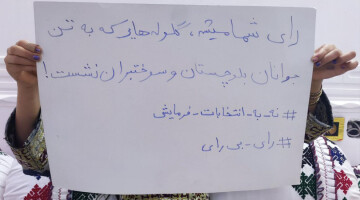 رای شما میشه، گلوله‌هایی که به تن
جوانان بلوچستان و سر دختران نشست!
#نه-به-انتخابات-فرمایشی
#رای-بی-رای